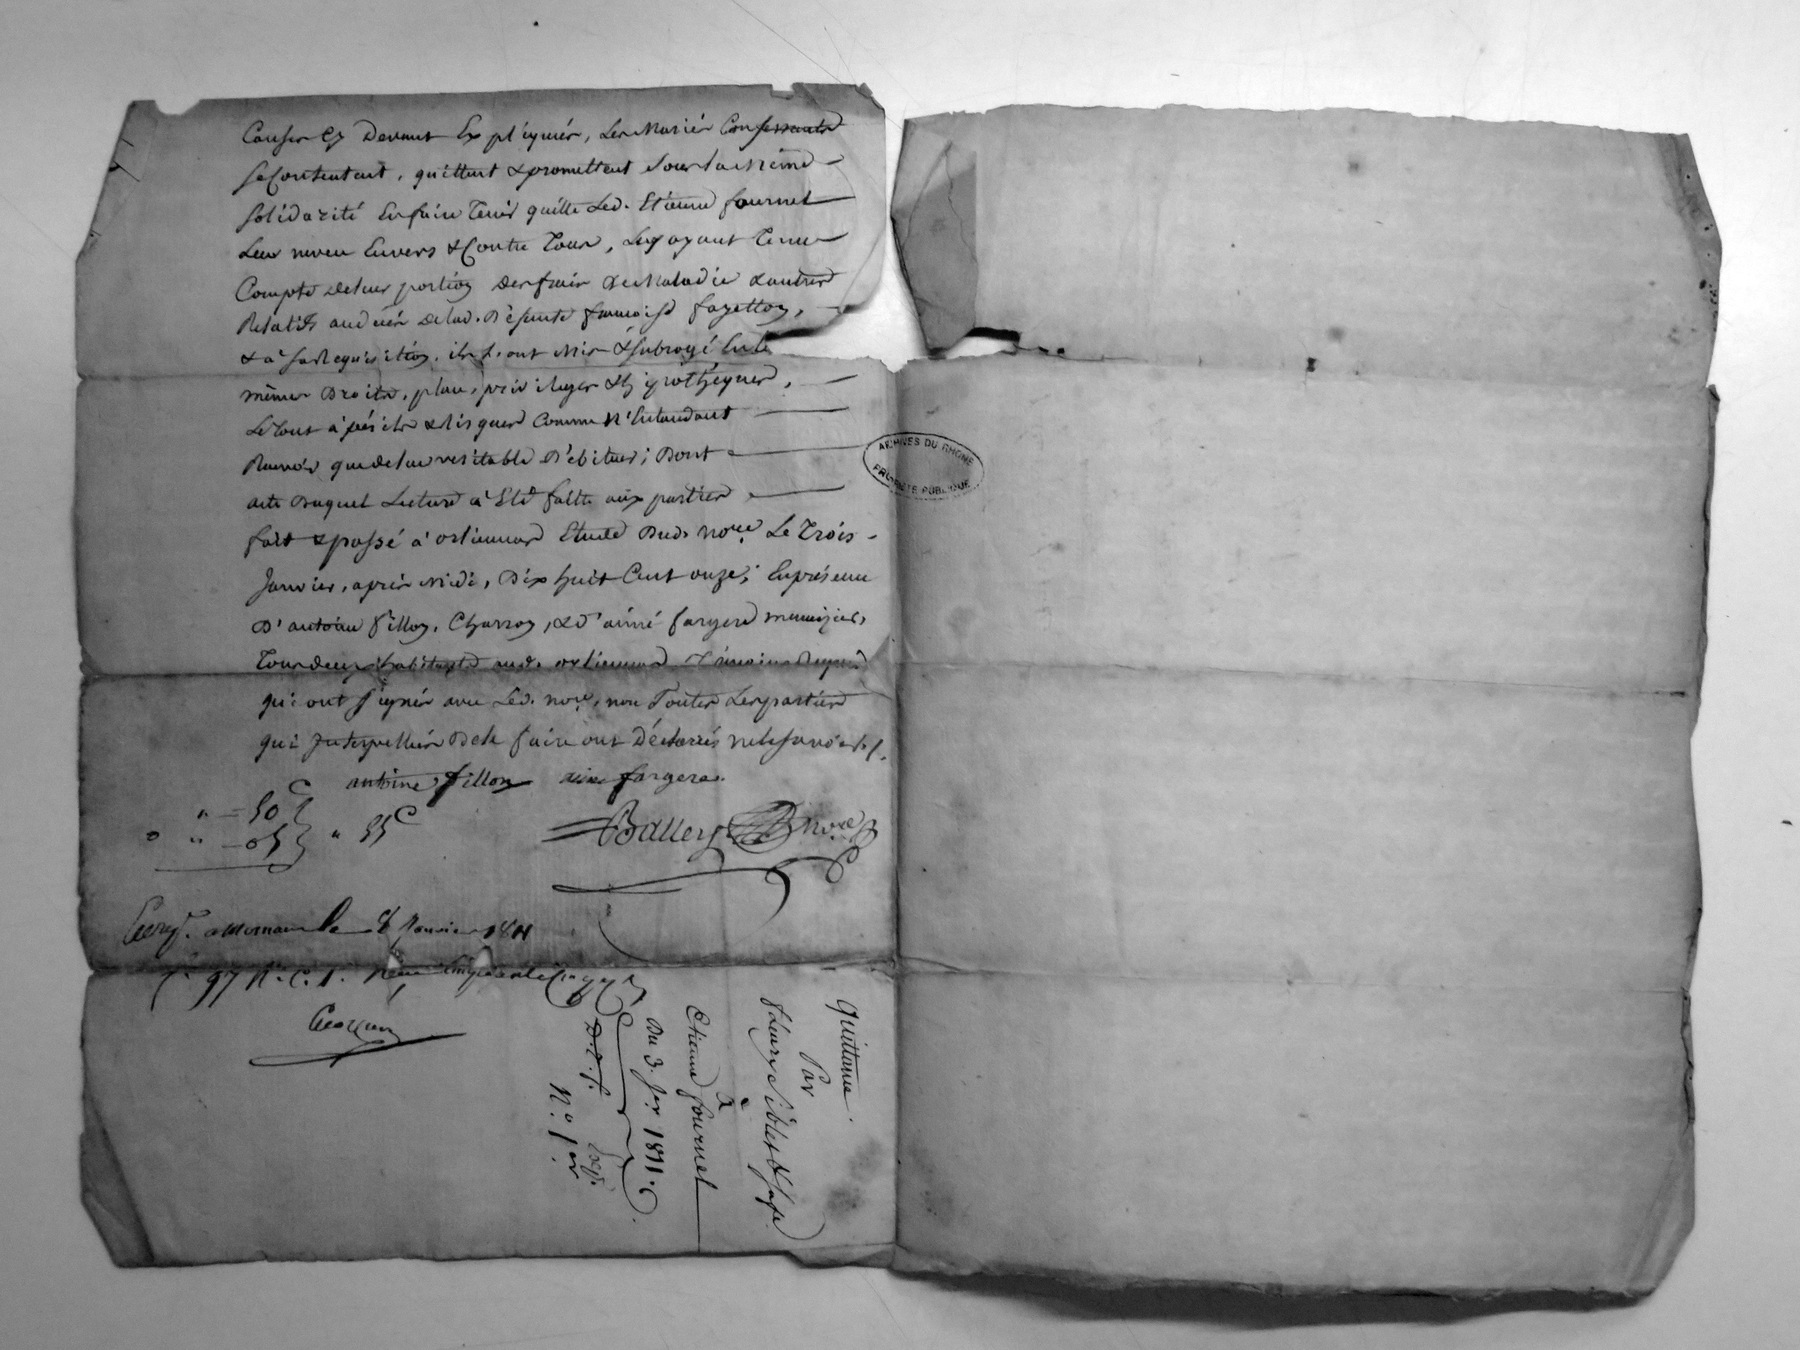 Causes cy Devant Expliquées, Les Mariés Confessants
se Contentent, quittent & promettent sous la même
solidarité En faire Tenir quitte Led. Etienne fournel
Leur neveu Envers & Contre Tous, Leur ayant Tenu
Compte de leur portion des frais de Maladie & autres
Relatifs au décés de lad. Défunte françoise fayollon,
& à sa Requisition, ils L'ont Mis & subrogé En Le
mêmes Droits, place, privileges & hypothéques,
Le Tout à périls & Risques Comme N'Entendant
Recevoir que de leur veritable Débiteur; Dont
acte Duquel Lecture a Eté faitte aux parties
fait & passé à orliennas Etude Dud. nore Le Trois
Janvier, après Midi, Dix huit Cent onze, En présence
D'antoine fillon, Charron, & d'aimé fargere menuizier,
Tous deux habitants aud. orliennas Témoins Requis
qui ont signés avec Led. nore, non Toutes Les parties
qui Interpellées De le faire ont Déclarés ne le savoir
antoine fillon aimé fargere
" = 50 c
" = 05 } " 55 c
nore
a Mornant le 8 Janvier 1811
fo 97 Ro C. 1. Reçu Cinquante Cinq
ARCHIVES DU RHONE
PROPRIÉTÉ PUBLIQUE
Quittance
Par
à
Etienne fournel
Du 3. Jer 1811.
No. 1er